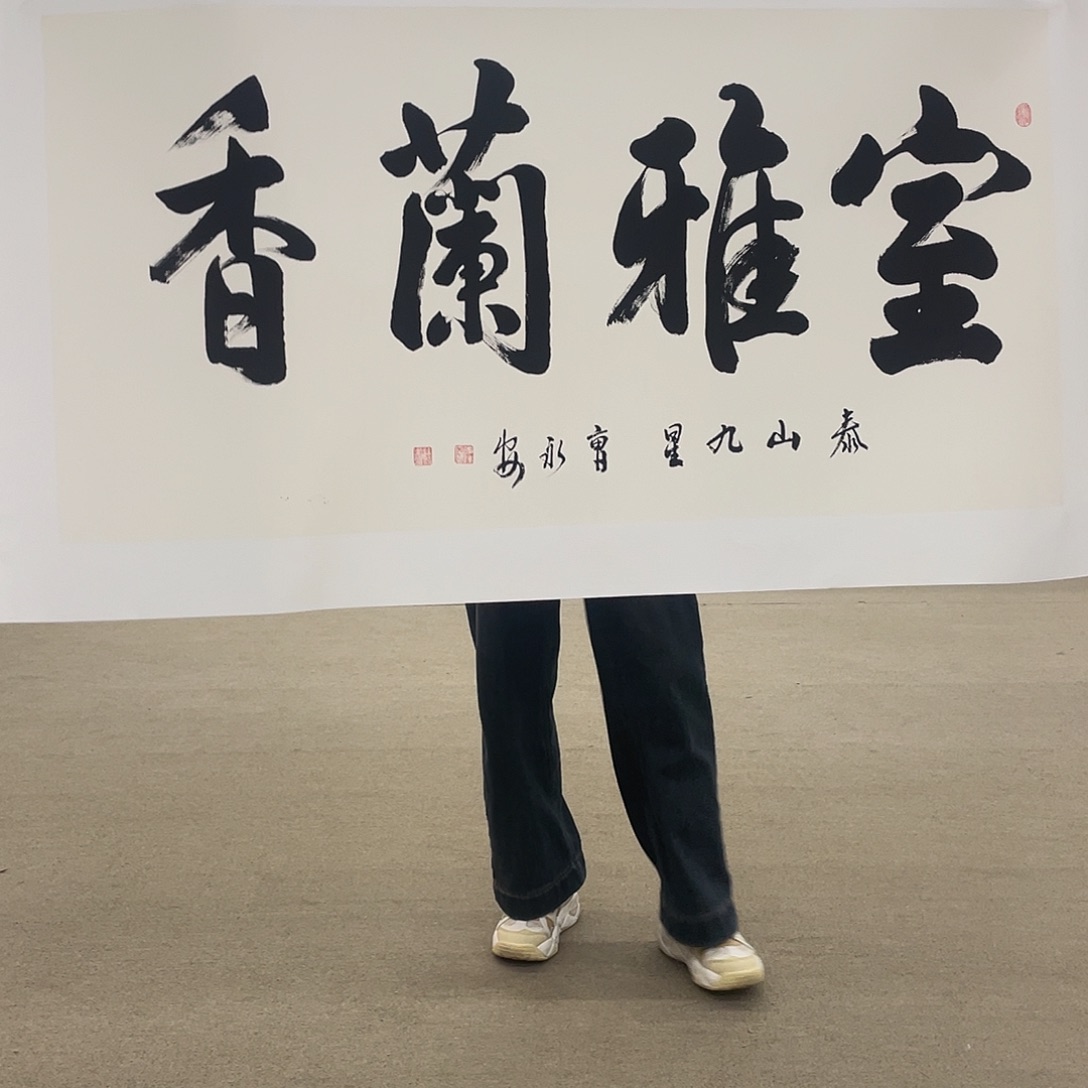 室雅蘭香
泰山九星曹永安